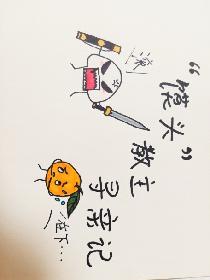 滚!
“馒头”
教主
寻亲记
在下...